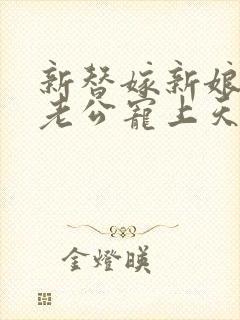 新替嫁新娘
老公宠上天
金燈暎